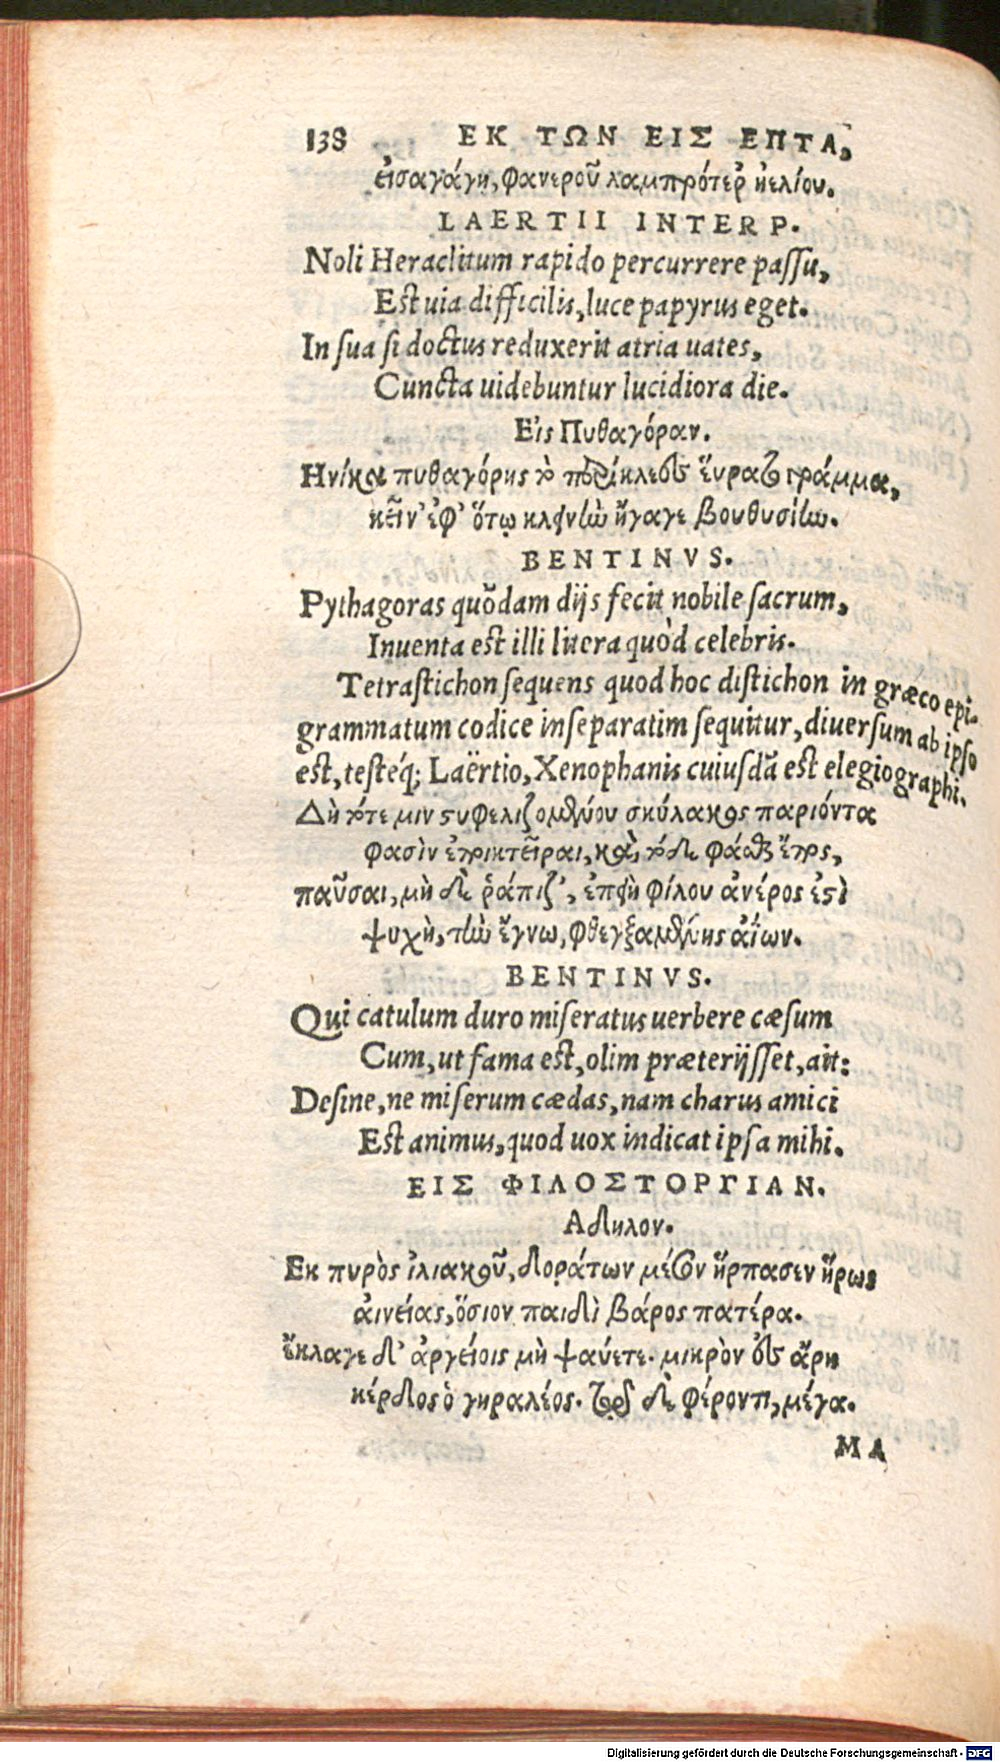 138 ΕΚ ΤΩΝ ΕΙΣ ΕΠΤΑ,
εἰσαγάγη, φανεροῦ λαμπρότερ᾽ ἠελίου.
LAERTII INTERP.
Noli Heraclitum rapido percurrere passu,
Est uia difficilis, luce papyrus eget.
In sua si doctus reduxerit atria uates,
Cuncta uidebuntur lucidiora die.
Εἰς Πυθαγόραν.
Ηνίκα πυθαγόρης τὸ περικλεὲς εὕρατο γράμμα,
κεῖν᾽ ἐφ᾽ ὅτῳ κλεινὴν ἤγαγε βουθυσίην.
BENTINVS.
Pythagoras quõdam dijs fecit nobile sacrum,
Inuenta est illi litera quòd celebris.
Tetrastichon sequens quod hoc distichon in græco epi-
grammatum codice inseparatim sequitur, diuersum ab ipso
est, testeq́; Laërtio, Xenophanis cuiusdã est elegiographi.
Δή ποτε μιν στυφελιζομένου σκύλακος παριόντα
φασὶν ἐποικτεῖραι, καὶ τόδε φάσθαι ἔπος,
παῦσαι, μὴ δὲ ῥάπιζ᾽, ἐπειὴ φίλου ἀνέρος ἐστὶ
ψυχὴ, τὴν ἔγνω, φθεγξαμένης ἀΐων.
BENTINVS.
Qui catulum duro miseratus uerbere cæsum
Cum, ut fama est, olim præterijsset, ait:
Desine, ne miserum cædas, nam charus amici
Est animus, quod uox indicat ipsa mihi.
ΕΙΣ ΦΙΛΟΣΤΟΡΓΙΑΝ.
Αδηλον.
Εκ πυρὸς ἰλιακοῦ, δοράτων μέσον ἥρπασεν ἥρως
αἰνείας, ὅσιον παιδὶ βάρος πατέρα.
ἔκλαγε δ᾽ ἀργείοις μὴ ψαύετε. μικρὸν ἐς ἄρη
κέρδος ὁ γηραλέος. τῷ δὲ φέροντι, μέγα.
ΜΑ
Digitalisierung gefördert durch die Deutsche Forschungsgemeinschaft - DFG